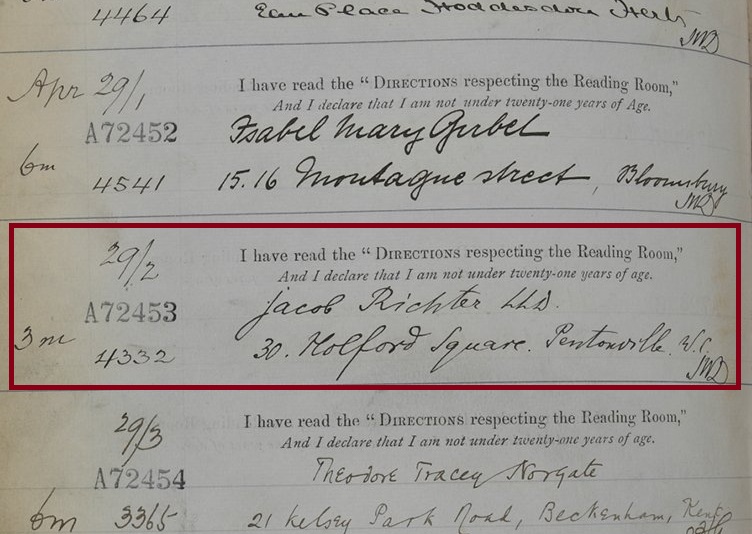 4464 Elm Place Hoddesdon Herts
Apr 29/1 I have read the “DIRECTIONS respecting the Reading Room,”
And I declare that I am not under twenty-one years of Age.
A72452 Isabel Mary Girbet
6m
4541 15.16 Montague street, Bloomsbury
29/2 I have read the “DIRECTIONS respecting the Reading Room,”
And I declare that I am not under twenty-one years of age.
A72453 Jacob Richter LLD.
3m 4332 30. Holford Square. Pentonville. W.C.
29/3 I have read the “DIRECTIONS respecting the Reading Room,”
And I declare that I am not under twenty-one years of age.
A72454 Theodore Tracey Norgate
6m 3365 21 Kelsey Park Road, Beckenham, Kent